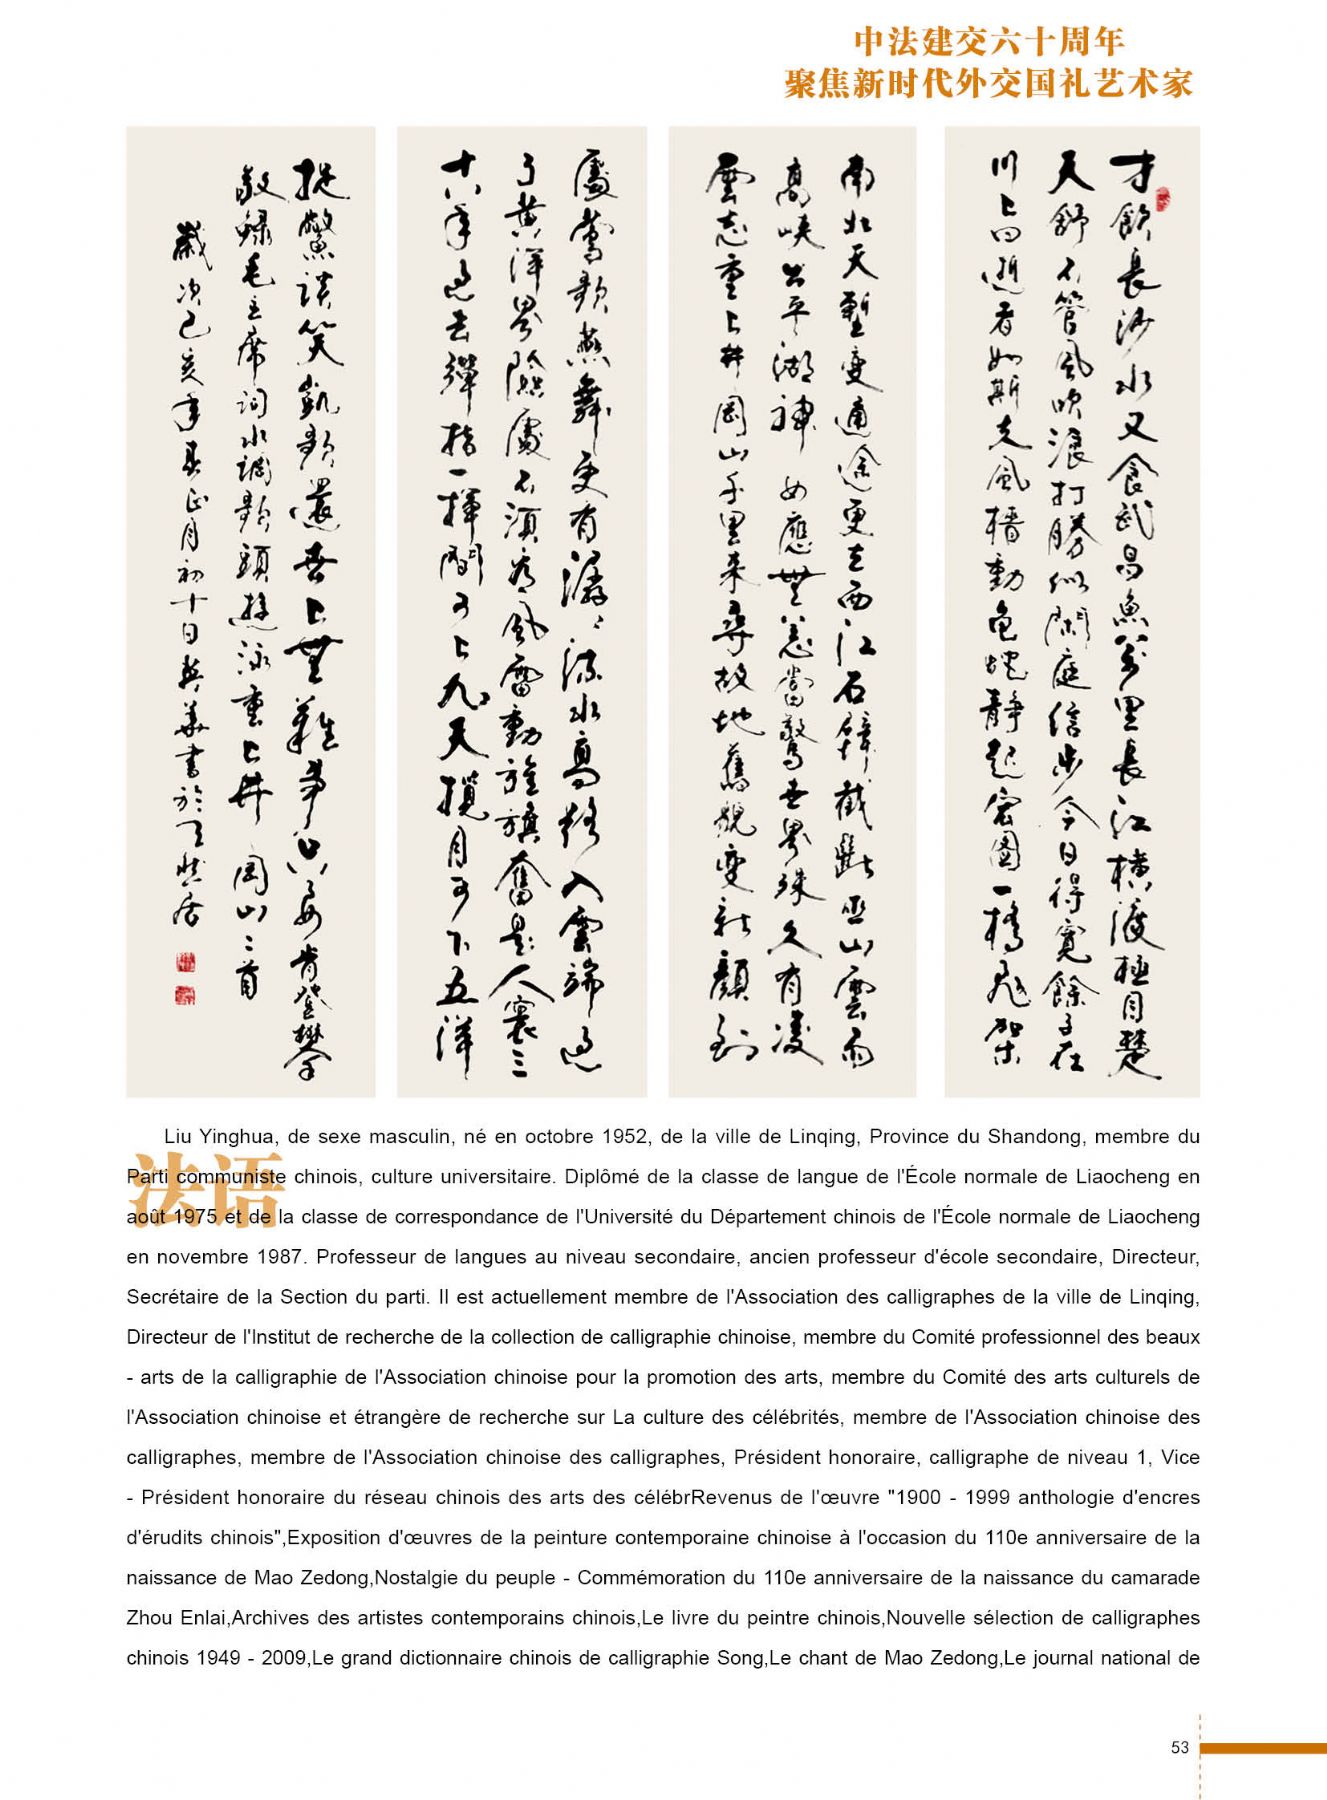 中法建交六十周年
聚焦新时代外交国礼艺术家
才飲長沙水又食武昌魚萬里長江橫渡極目楚
天舒不管風吹浪打勝似閑庭信步今日得寬餘子在
川上曰逝者如斯夫風檣動龜蛇靜起宏圖一橋飛架
南北天塹變通途更立西江石壁截斷巫山雲雨
高峽出平湖神女應無恙當驚世界殊久有凌
雲志重上井岡山千里來尋故地舊貌變新顏到
處鶯歌燕舞更有潺々流水高路入雲端過
了黃洋界險處不須看風雷動旌旗奮是人寰三
十八年過去彈指一揮間可上九天攬月可下五洋
捉鱉談笑凱歌還世上無難事只要肯登攀
敬錄毛主席詞水調歌頭游泳重上井岡山二首
歲次己亥年春正月初十日英華書於天然居
法语
Liu Yinghua, de sexe masculin, né en octobre 1952, de la ville de Linqing, Province du Shandong, membre du
Parti communiste chinois, culture universitaire. Diplômé de la classe de langue de l'École normale de Liaocheng en
août 1975 et de la classe de correspondance de l'Université du Département chinois de l'École normale de Liaocheng
en novembre 1987. Professeur de langues au niveau secondaire, ancien professeur d'école secondaire, Directeur,
Secrétaire de la Section du parti. Il est actuellement membre de l'Association des calligraphes de la ville de Linqing,
Directeur de l'Institut de recherche de la collection de calligraphie chinoise, membre du Comité professionnel des beaux
- arts de la calligraphie de l'Association chinoise pour la promotion des arts, membre du Comité des arts culturels de
l'Association chinoise et étrangère de recherche sur La culture des célébrités, membre de l'Association chinoise des
calligraphes, membre de l'Association chinoise des calligraphes, Président honoraire, calligraphe de niveau 1, Vice
- Président honoraire du réseau chinois des arts des célébrRevenus de l'œuvre "1900 - 1999 anthologie d'encres
d'érudits chinois",Exposition d'œuvres de la peinture contemporaine chinoise à l'occasion du 110e anniversaire de la
naissance de Mao Zedong,Nostalgie du peuple - Commémoration du 110e anniversaire de la naissance du camarade
Zhou Enlai,Archives des artistes contemporains chinois,Le livre du peintre chinois,Nouvelle sélection de calligraphes
chinois 1949 - 2009,Le grand dictionnaire chinois de calligraphie Song,Le chant de Mao Zedong,Le journal national de
53